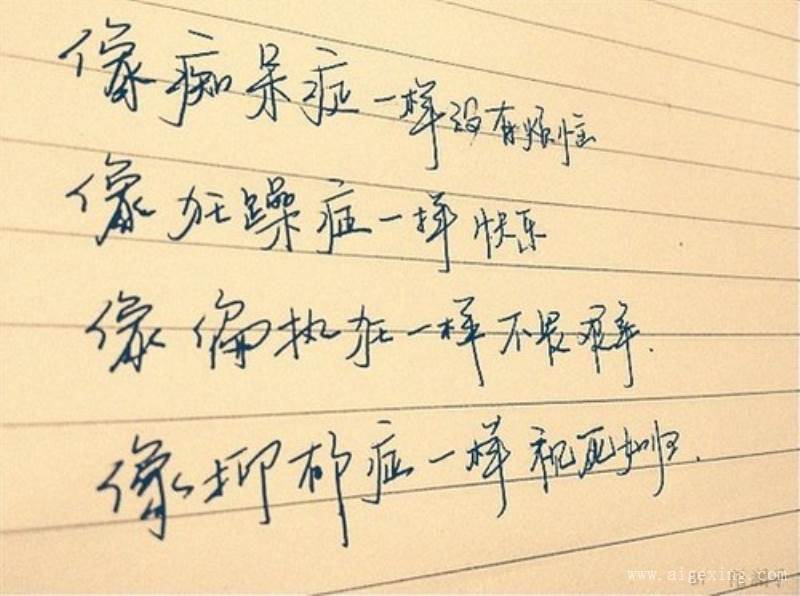 像痴呆症一样没有烦恼
像狂躁症一样快乐
像偏执狂一样不畏艰辛.
像抑郁症一样视死如归.
www.aigexing.com